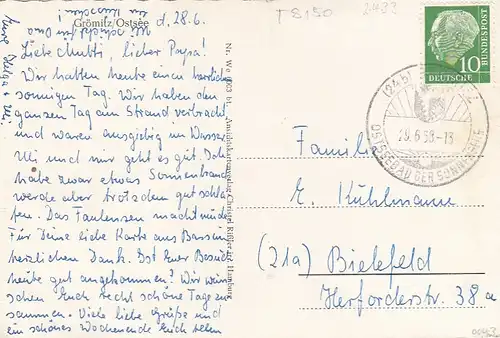 Grömitz/Ostsee
d. 28.6.
Liebe Mutti, lieber Papa!
Wir hatten heute einen herrlichen
sonnigen Tag. Wir haben den
ganzen Tag am Strand verbracht
und waren ausgiebig im Wasser.
Uli und mir geht es gut. Ich
habe zwar etwas Sonnenbrand,
werde aber trotzdem gut schla-
fen. Das Faulenzen macht müde.
Für Deine liebe Karte aus Bassum
herzlichen Dank. Ist Euer Besuch
heute gut angekommen? Wir wün-
schen Euch recht schöne Tage zu-
sammen. Viele liebe Grüße und
ein schönes Wochenende Euch allen
Eure Helga + Uli
Nr. We 6723 bt. "Ansichtskartenverlag Christel Rißler jr., Hamburg
T S150
DEUTSCHE BUNDESPOST
10
28.6.58-13
OSTSEEBAD DER SONNENSEITE
Familie
E. Kühlmann
(21a) Bielefeld
Herforderstr. 38a